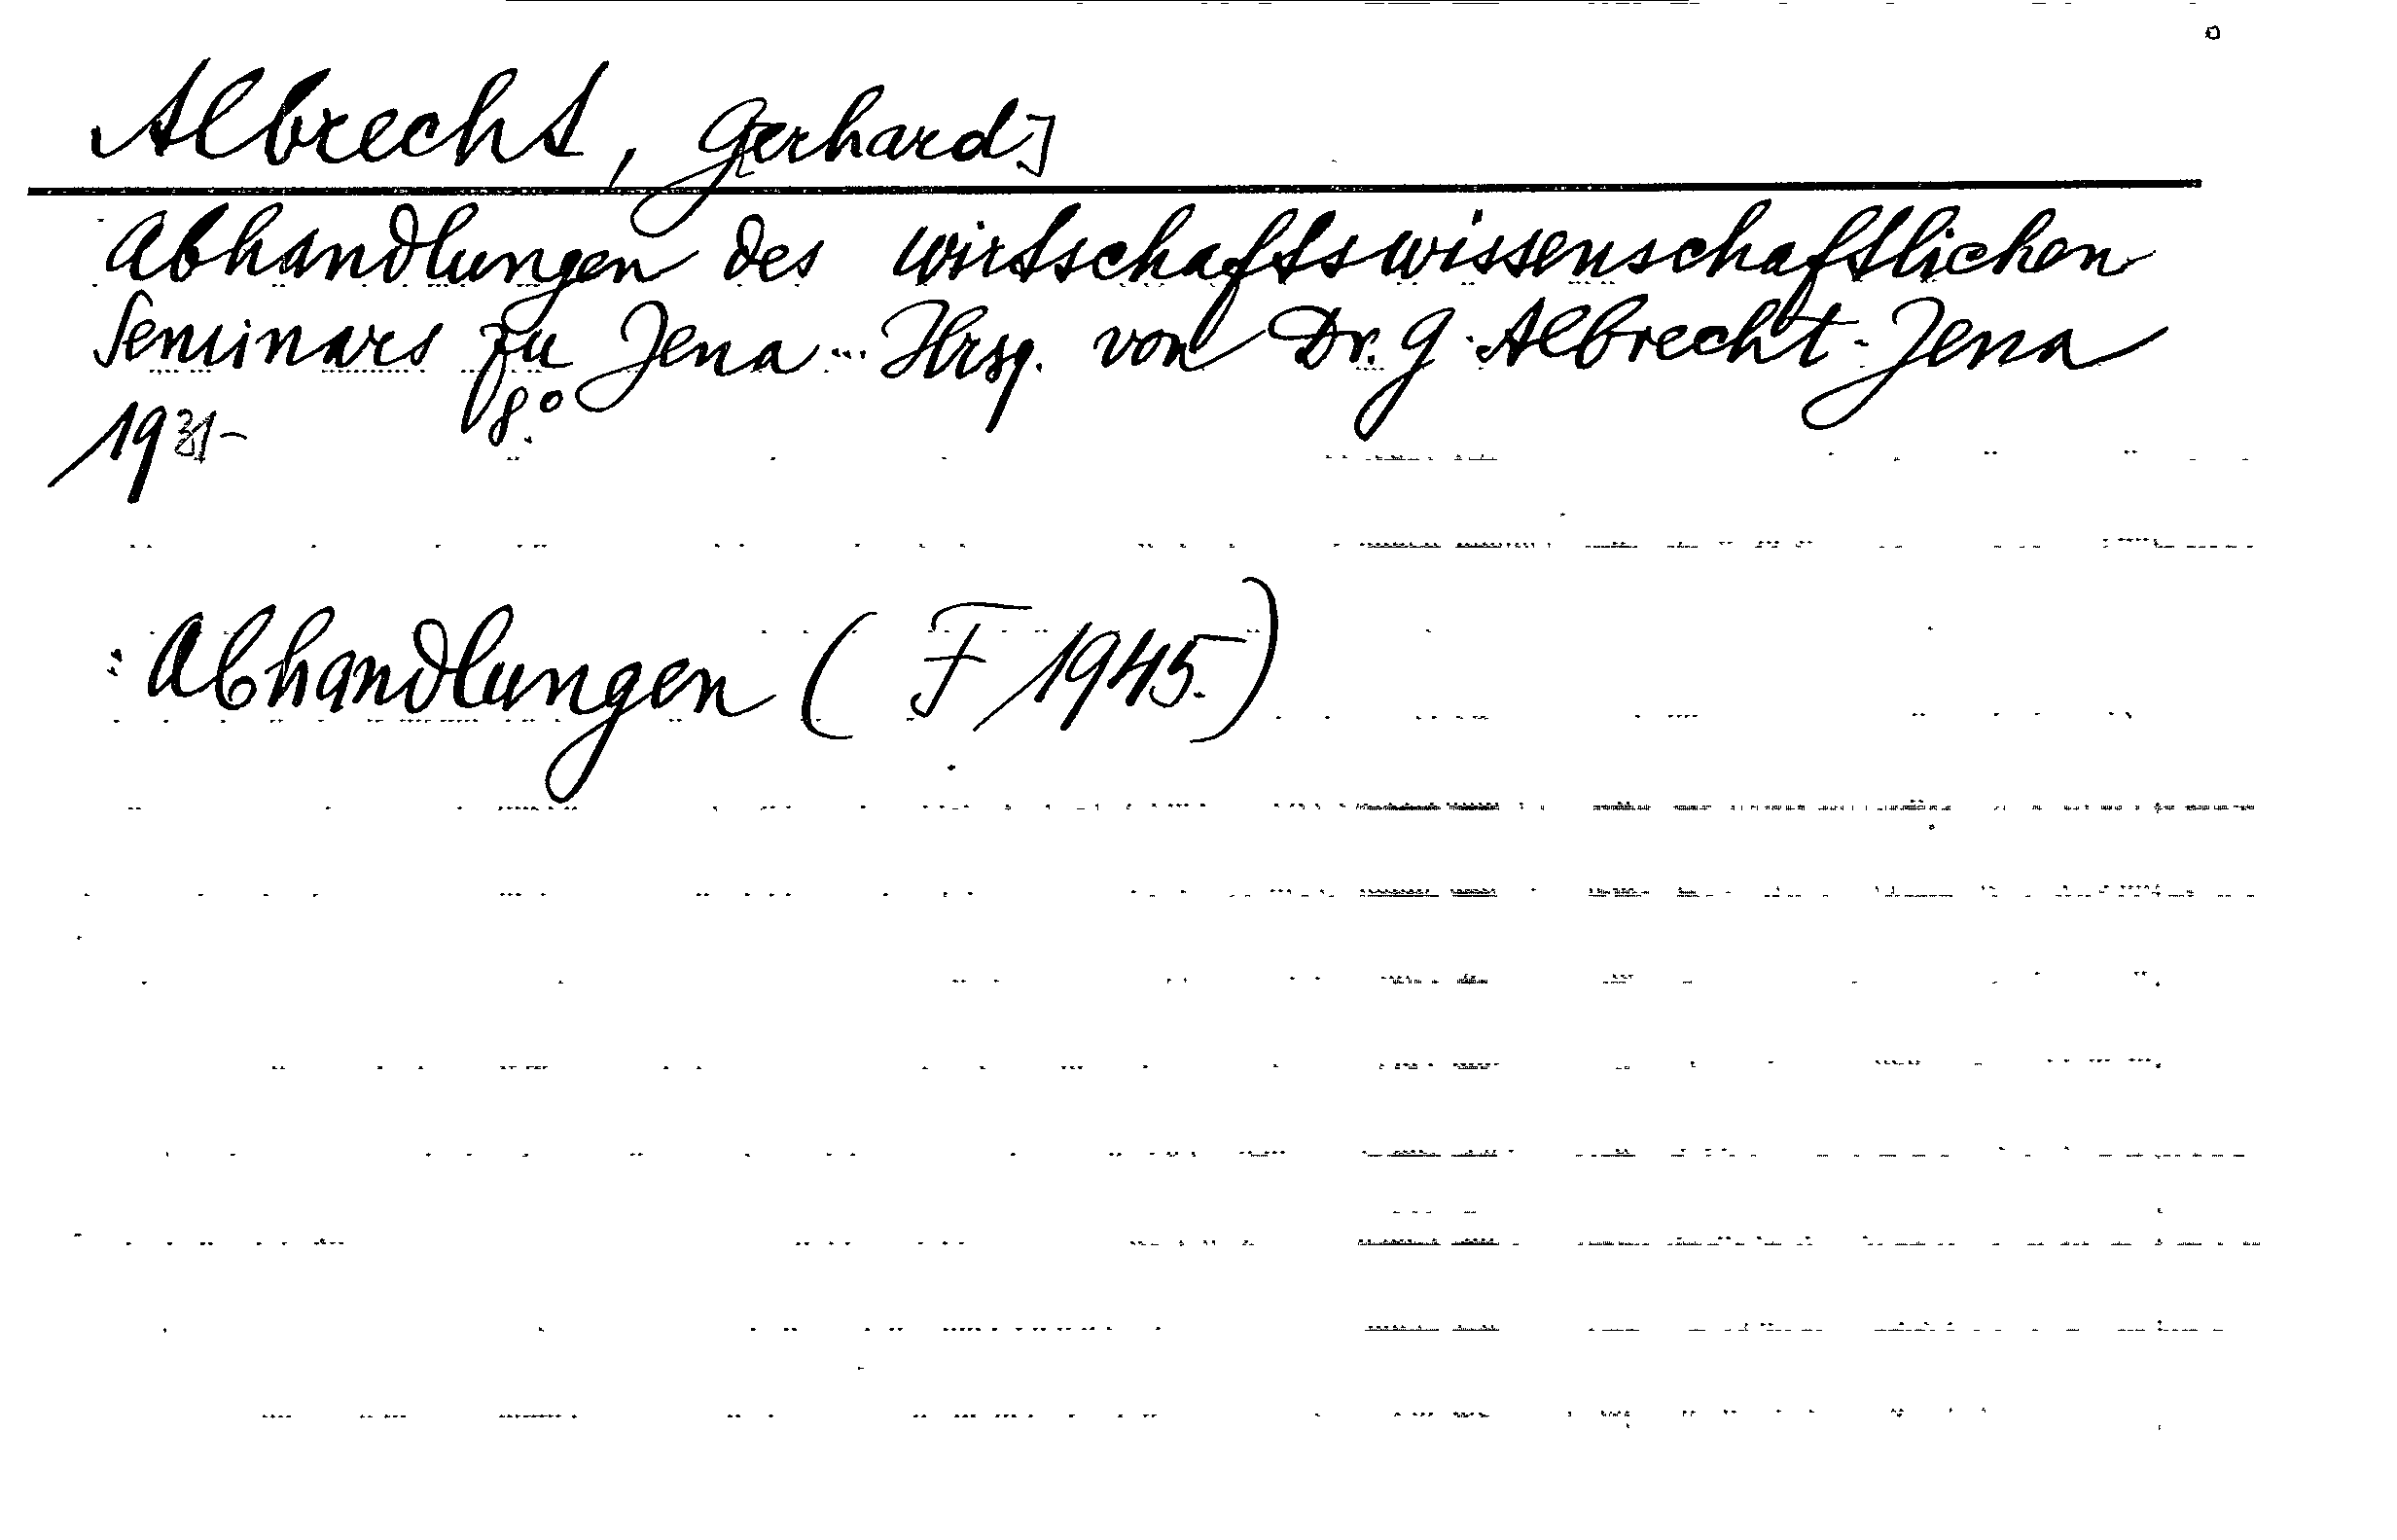 Albrecht, Gerhard]
Abhandlungen des wirtschaftswissenschaftlichen
Seminars zu Jena ... Hrsg. von Dr. G. Albrecht - Jena
1931- 8°.
: Abhandlungen ( F 1945.)